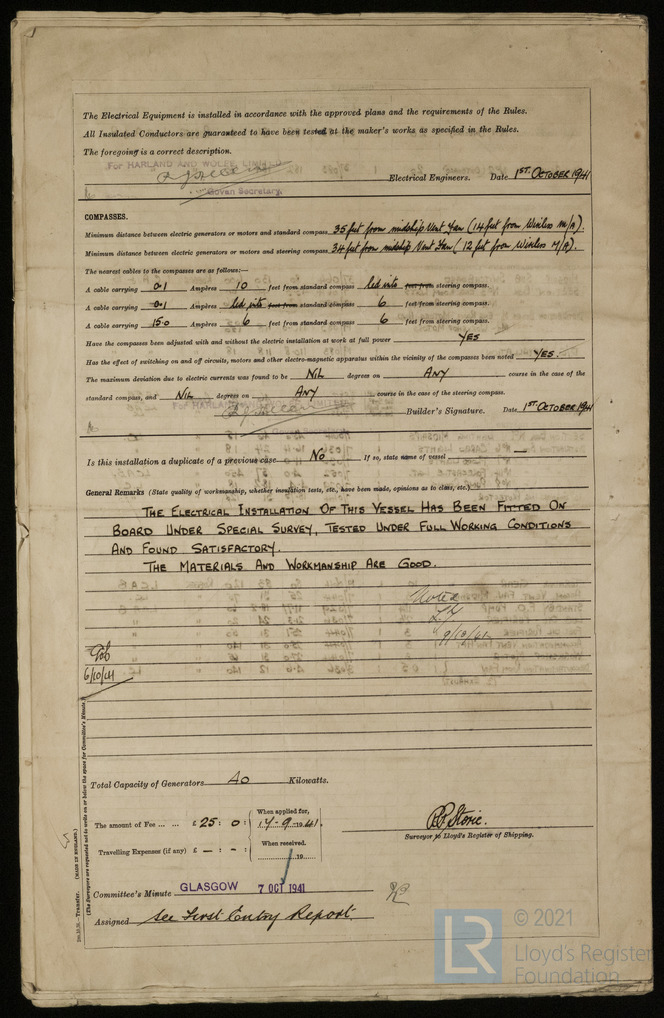 The Electrical Equipment is installed in accordance with the approved plans and the requirements of the Rules.
All Insulated Conductors are guaranteed to have been tested at the maker's works as specified in the Rules.
The foregoing is a correct description.
For HARLAND AND WOLFF, LIMITED
Electrical Engineers. Date 1st. October 1941
Govan Secretary.
COMPASSES.
Minimum distance between electric generators or motors and standard compass 35 feet from midship Vent Fan (14 feet from Wireless M/A).
Minimum distance between electric generators or motors and steering compass 34 feet from midship Vent Fan (12 feet from Wireless M/A).
The nearest cables to the compasses are as follows:—
A cable carrying 0.1 Ampères 10 feet from standard compass led into feet from steering compass.
A cable carrying 0.1 Ampères led into feet from standard compass 6 feet from steering compass.
A cable carrying 15.0 Ampères 6 feet from standard compass 6 feet from steering compass.
Have the compasses been adjusted with and without the electric installation at work at full power YES
Has the effect of switching on and off circuits, motors and other electro-magnetic apparatus within the vicinity of the compasses been noted YES.
The maximum deviation due to electric currents was found to be NIL degrees on ANY course in the case of the
standard compass, and NIL degrees on ANY course in the case of the steering compass.
For HARLAND
Builder's Signature. Date 1st. October 1941
Is this installation a duplicate of a previous case No If so, state name of vessel —
General Remarks (State quality of workmanship, whether insulation tests, etc., have been made, opinions as to class, etc.)
The Electrical Installation Of This Vessel Has Been Fitted On
Board Under Special Survey, Tested Under Full Working Conditions
And Found Satisfactory.
The Materials And Workmanship Are Good.
Noted
9/10/41
6/10/41
Total Capacity of Generators 40 Kilowatts.
The amount of Fee ... ... £ 25 : 0 :
When applied for,
4-9-1941.
Travelling Expenses (if any) £ — : — :
When received.
19
P. Storie.
Surveyor to Lloyd's Register of Shipping.
Committee's Minute GLASGOW 7 OCT 1941
Assigned See First Entry Report.
(The Surveyors are requested not to write on or below the space for Committee's Minute.)
—Transfer. (MADE IN ENGLAND.)
LR
© 2021
Lloyd's Register
Foundation